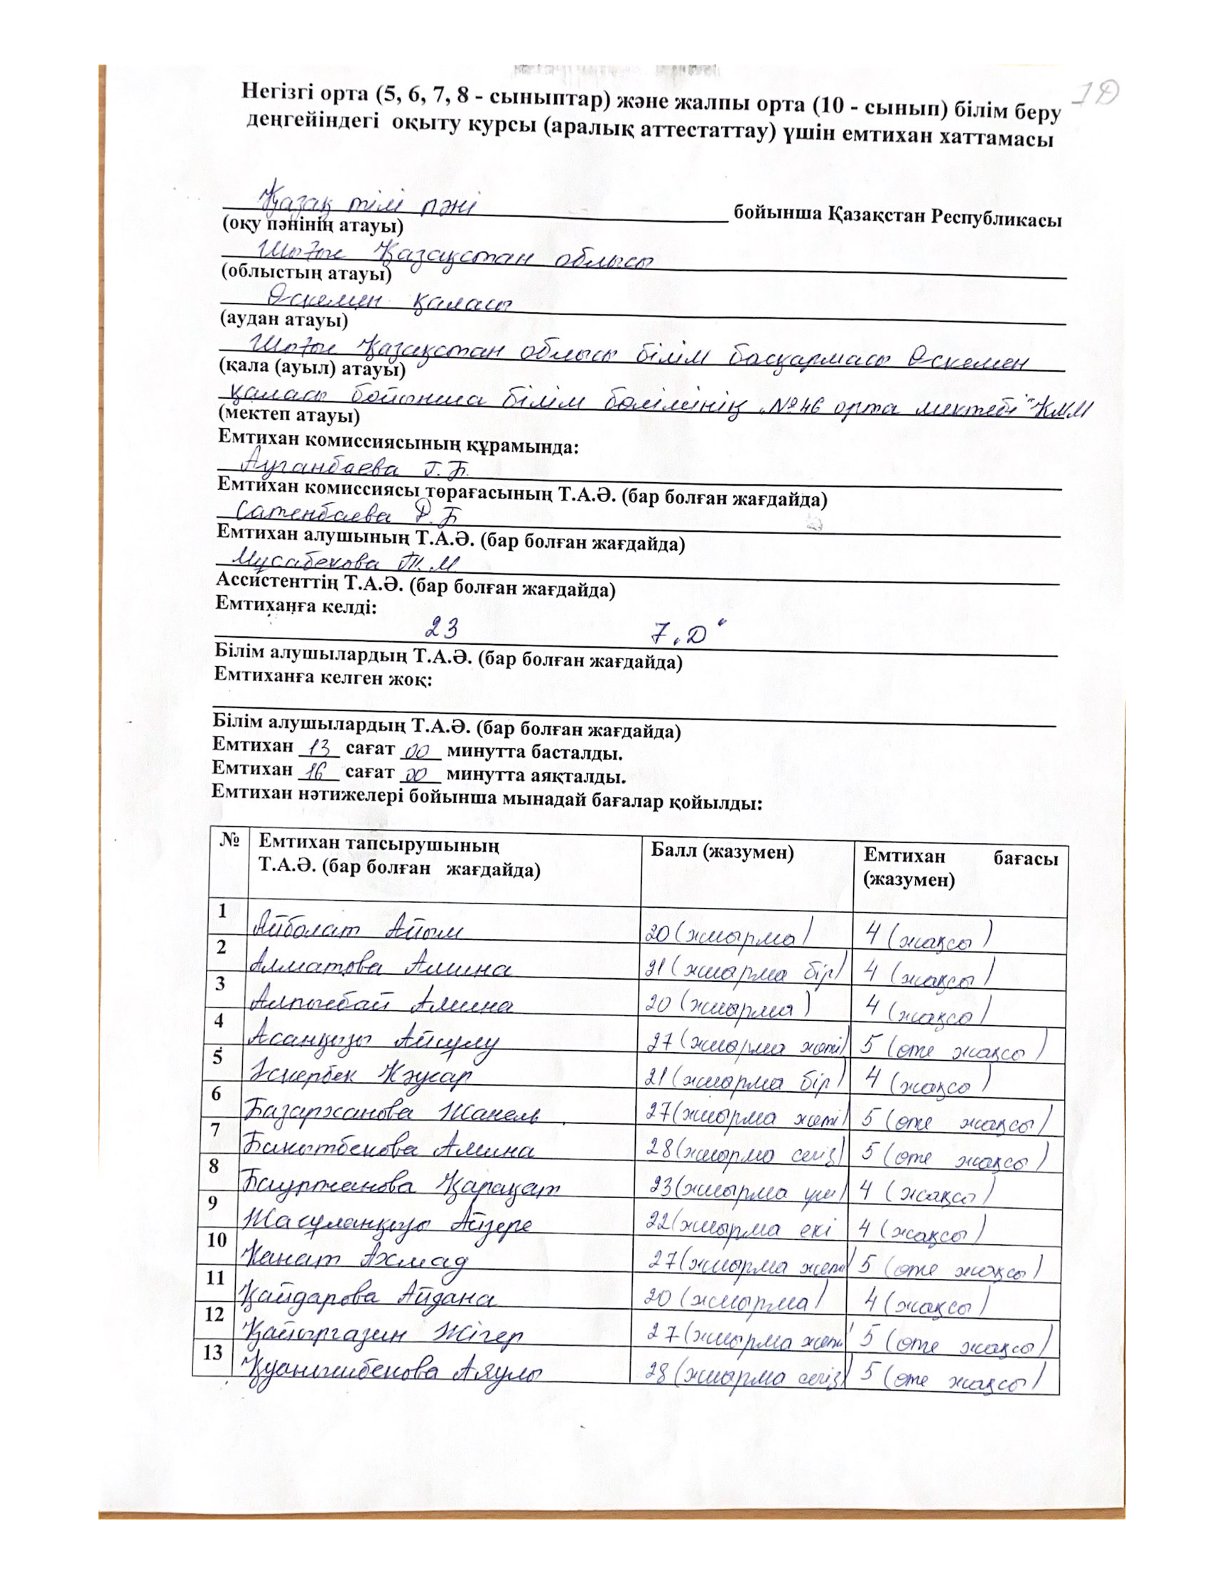 1D
Негізгі орта (5, 6, 7, 8 - сыныптар) және жалпы орта (10 - сынып) білім беру
деңгейіндегі оқыту курсы (аралық аттестаттау) үшін емтихан хаттамасы
Қазақ тілі пәні бойынша Қазақстан Республикасы
(оқу пәнінің атауы)
Шығыс Қазақстан облысы
(облыстың атауы)
Өскемен қаласы
(аудан атауы)
Шығыс Қазақстан облысы білім басқармасы Өскемен
(қала (ауыл) атауы)
қаласы бойынша білім бөлімінің №46 орта мектебі" КММ
(мектеп атауы)
Емтихан комиссиясының құрамында:
Ауганбаева Г.Б.
Емтихан комиссиясы төрағасының Т.А.Ә. (бар болған жағдайда)
Сатенбаева Р.Б
Емтихан алушының Т.А.Ә. (бар болған жағдайда)
Мусабекова Т.М
Ассистенттің Т.А.Ә. (бар болған жағдайда)
Емтиханға келді:
23 7 „D“
Білім алушылардың Т.А.Ә. (бар болған жағдайда)
Емтиханға келген жоқ:
Білім алушылардың Т.А.Ә. (бар болған жағдайда)
Емтихан 13 сағат 00 минутта басталды.
Емтихан 16 сағат 00 минутта аяқталды.
Емтихан нәтижелері бойынша мынадай бағалар қойылды:
№ Емтихан тапсырушының Т.А.Ә. (бар болған жағдайда) Балл (жазумен) Емтихан бағасы (жазумен)
1 Айболат Айым 20 (жиырма) 4 (жақсы)
2 Алматова Амина 21 (жиырма бір) 4 (жақсы)
3 Алпысбай Амина 20 (жиырма) 4 (жақсы)
4 Асанқызы Айсулу 27 (жиырма жеті) 5 (өте жақсы)
5 Әскербек Кәусар 21 (жиырма бір) 4 (жақсы)
6 Базарханова Жанель 27 (жиырма жеті) 5 (өте жақсы)
7 Бакытбекова Амина 28 (жиырма сегіз) 5 (өте жақсы)
8 Бауржанова Қарақат 23 (жиырма үш) 4 (жақсы)
9 Жасұланқызы Айзере 22 (жиырма екі 4 (жақсы)
10 Канат Ахмад 27 (жиырма жеті) 5 (өте жақсы)
11 Қайдарова Айдана 20 (жиырма) 4 (жақсы)
12 Қайыргазин Жігер 27 (жиырма жеті) 5 (өте жақсы)
13 Қуанышбекова Аяулы 28 (жиырма сегіз) 5 (өте жақсы)